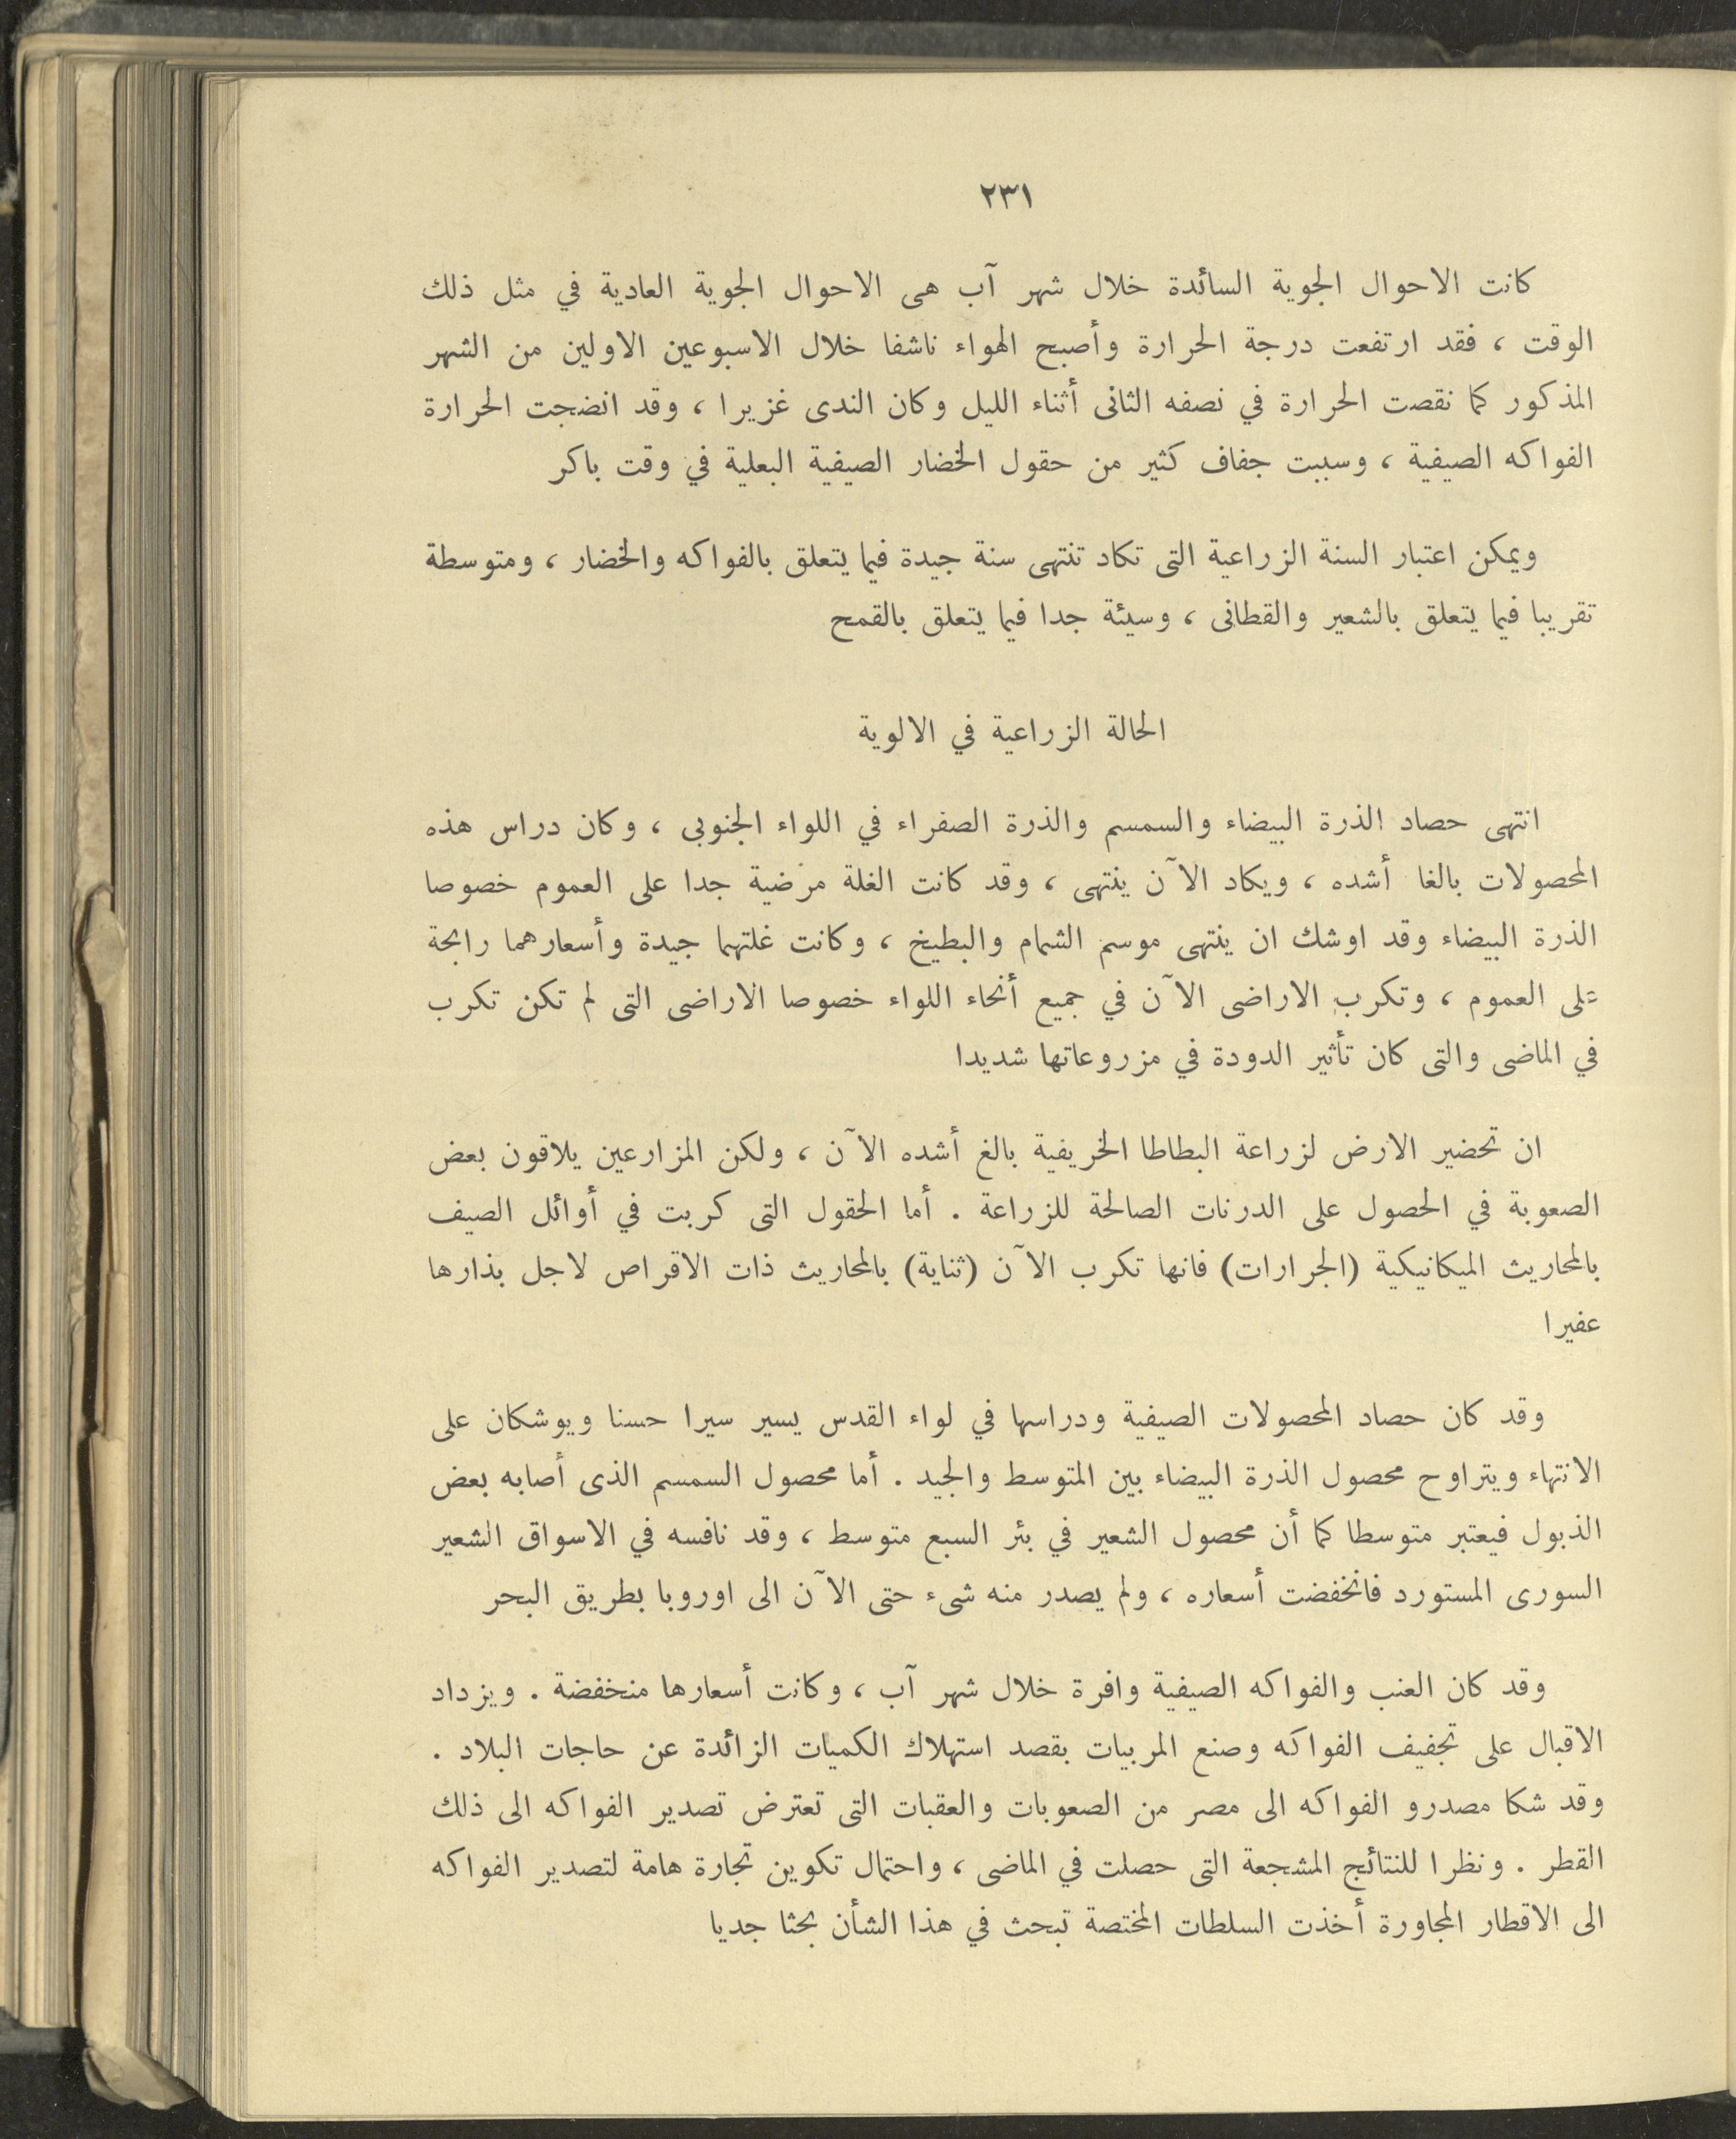 ٢٣١
كانت الاحوال الجوية السائدة خلال شهر آب هى الاحوال الجوية العادية في مثل ذلك
الوقت ، فقد ارتفعت درجة الحرارة وأصبح الهواء ناشفا خلال الاسبوعين الاولين من الشهر
المذكور كما نقصت الحرارة في نصفه الثانى أثناء الليل وكان الندى غزيرا ، وقد انضجت الحرارة
الفواكه الصيفية ، وسببت جفاف كثير من حقول الخضار الصيفية البعلية في وقت باكر
ويمكن اعتبار السنة الزراعية التى تكاد تنتهى سنة جيدة فيما يتعلق بالفواكه والخضار ، ومتوسطة
تقريبا فيما يتعلق بالشعير والقطانى ، وسيئة جدا فيما يتعلق بالقمح
الحالة الزراعية في الالوية
انتهى حصاد الذرة البيضاء والسمسم والذرة الصفراء في اللواء الجنوبى ، وكان دراس هذه
المحصولات بالغا أشده ، ويكاد الآن ينتهى ، وقد كانت الغلة مرضية جدا على العموم خصوصا
الذرة البيضاء وقد اوشك ان ينتهى موسم الشمام والبطيخ ، وكانت غلتهما جيدة وأسعارهما رابحة
على العموم ، وتكرب الاراضى الآن في جميع أنحاء اللواء خصوصا الاراضى التى لم تكن تكرب
في الماضى والتى كان تأثير الدودة في مزروعاتها شديدا
ان تحضير الارض لزراعة البطاطا الخريفية بالغ أشده الآن ، ولكن المزارعين يلاقون بعض
الصعوبة في الحصول على الدرنات الصالحة للزراعة . أما الحقول التى كربت في أوائل الصيف
بالمحاريث الميكانيكية (الجرارات) فانها تكرب الآن (ثناية) بالمحاريث ذات الاقراص لاجل بذارها
عفيرا
وقد كان حصاد المحصولات الصيفية ودراسها في لواء القدس يسير سيرا حسنا ويوشكان على
الانتهاء ويتراوح محصول الذرة البيضاء بين المتوسط والجيد . أما محصول السمسم الذى أصابه بعض
الذبول فيعتبر متوسطا كما أن محصول الشعير في بئر السبع متوسط ، وقد نافسه في الاسواق الشعير
السورى المستورد فانخفضت أسعاره ، ولم يصدر منه شىء حتى الآن الى اوروبا بطريق البحر
وقد كان العنب والفواكه الصيفية وافرة خلال شهر آب ، وكانت أسعارها منخفضة . ويزداد
الاقبال على تجفيف الفواكه وصنع المربيات بقصد استهلاك الكميات الزائدة عن حاجات البلاد .
وقد شكا مصدرو الفواكه الى مصر من الصعوبات والعقبات التى تعترض تصدير الفواكه الى ذلك
القطر . ونظرا للنتائج المشجعة التى حصلت في الماضى ، واحتمال تكوين تجارة هامة لتصدير الفواكه
الى الاقطار المجاورة أخذت السلطات المختصة تبحث في هذا الشأن بحثا جديا